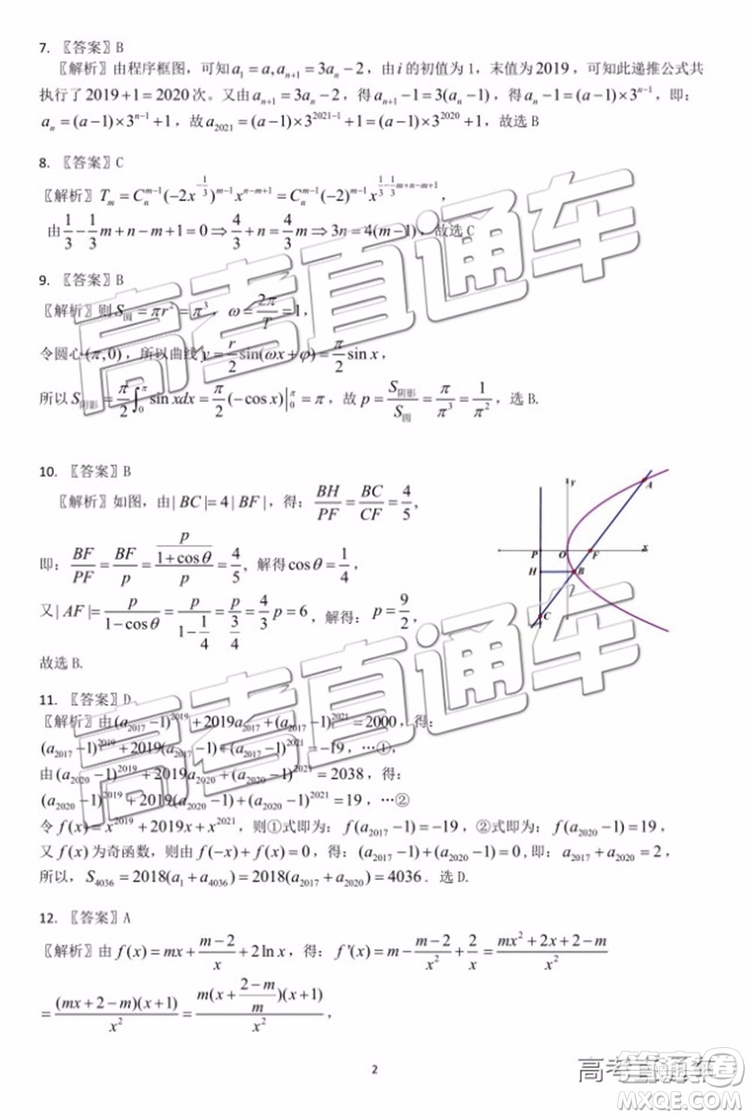 7. 〖答案〗B
〖解析〗由程序框图，可知a₁=a,aₙ₊₁=3aₙ−2，由i的初值为1，末值为2019，可知此递推公式共
执行了2019+1=2020次。又由aₙ₊₁=3aₙ−2，得aₙ₊₁−1=3(aₙ−1)，得aₙ−1=(a−1)×3^{n−1}，即：
aₙ=(a−1)×3^{n−1}+1，故a₂₀₂₁=(a−1)×3^{2021−1}+1=(a−1)×3^{2020}+1，故选B
8. 〖答案〗C
〖解析〗T_m=C_n^{m−1}(−2x^{−1/3})^{m−1}x^{n−m+1}=C_n^{m−1}(−2)^{m−1}x^{1/3−1/3m+n−m+1}，
由1/3−1/3m+n−m+1=0⇒4/3+n=4/3m⇒3n=4(m−1)，故选C
9. 〖答案〗B
〖解析〗则S圆=πr²=π³，ω=2π/T=1，
令圆心(π,0)，所以曲线y=r/2sin(ωx+φ)=π/2sinx，
所以S阴影=π/2∫₀^π sinxdx=π/2(−cosx)|₀^π=π，故p=S阴影/S圆=π/π³=1/π²，选B.
10. 〖答案〗B
〖解析〗如图，由|BC|=4|BF|，得：BH/PF=BC/CF=4/5，
即：BF/PF=BF/p=(p/(1+cosθ))/p=4/5，解得cosθ=1/4，
又|AF|=p/(1−cosθ)=p/(1−1/4)=p/(3/4)=4/3p=6，解得：p=9/2，
故选B.
y
A
P
O
F
x
H
B
C
11. 〖答案〗D
〖解析〗由(a₂₀₁₇−1)^{2019}+2019a₂₀₁₇+(a₂₀₁₇−1)^{2021}=2000，得：
(a₂₀₁₇−1)^{2019}+2019(a₂₀₁₇−1)+(a₂₀₁₇−1)^{2021}=−19，…①，
由(a₂₀₂₀−1)^{2019}+2019a₂₀₂₀+(a₂₀₂₀−1)^{2021}=2038，得：
(a₂₀₂₀−1)^{2019}+2019(a₂₀₂₀−1)+(a₂₀₂₀−1)^{2021}=19，…②
令f(x)=x^{2019}+2019x+x^{2021}，则①式即为：f(a₂₀₁₇−1)=−19，②式即为：f(a₂₀₂₀−1)=19，
又f(x)为奇函数，f(−x)+f(x)=0，则：(a₂₀₁₇−1)+(a₂₀₂₀−1)=0,即：a₂₀₁₇+a₂₀₂₀=2，
所以，S₄₀₃₆=2018(a₁+a₄₀₃₆)=2018(a₂₀₁₇+a₂₀₂₀)=4036．选D.
12. 〖答案〗A
〖解析〗由f(x)=mx+(m−2)/x+2lnx，得：f'(x)=m−(m−2)/x²+2/x=(mx²+2x+2−m)/x²
=(mx+2−m)(x+1)/x²=m(x+(2−m)/m)(x+1)/x²，
2
高考直通车
高考直通车
高考直通车
MXQE.COM